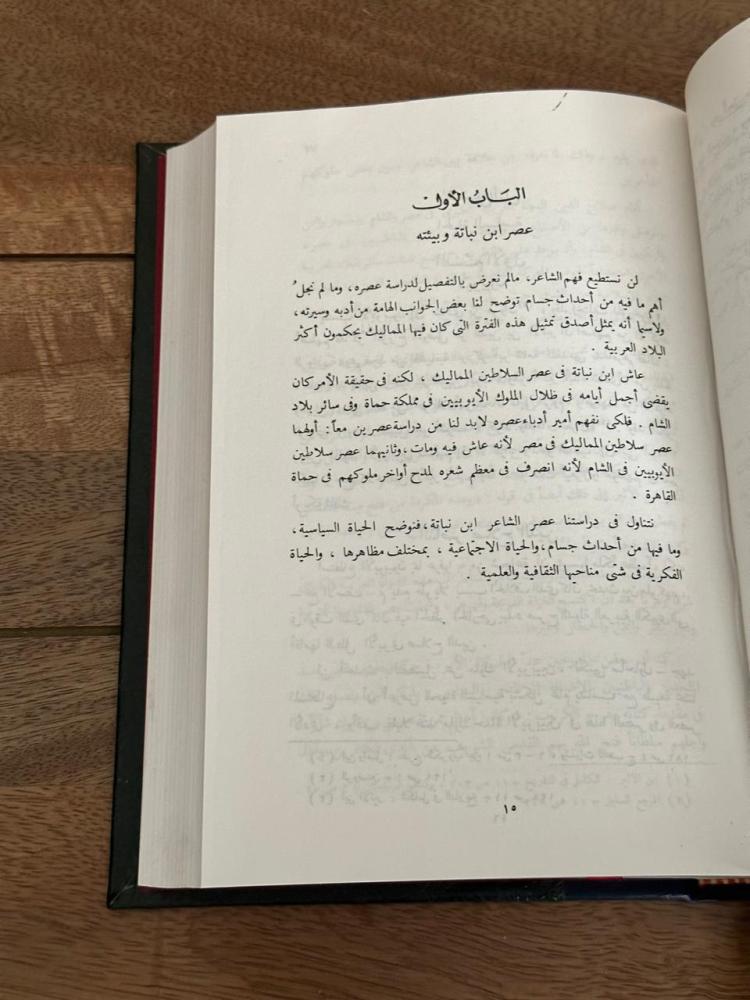 الباب الأول
عصر ابن نباتة وبيئته
لن نستطيع فهم الشاعر، مالم نعرض بالتفصيل لدراسة عصره، وما لم نجلُ
أهم ما فيه من أحداث جسام توضح لنا بعض الجوانب الهامة من أدبه وسيرته،
ولاسيما أنه يمثل أصدق تمثيل هذه الفترة التى كان فيها المماليك يحكمون أكثر
البلاد العربية .
عاش ابن نباتة فى عصر السلاطين المماليك ، لكنه فى حقيقة الأمر كان
يقضى أجمل أيامه فى ظلال الملوك الأيوبيين فى مملكة حماة وفى سائر بلاد
الشام . فلكى نفهم أمير أدباء عصره لابد لنا من دراسة عصرين معاً: أولهما
عصر سلاطين المماليك فى مصر لأنه عاش فيه ومات، وثانيهما عصر سلاطين
الأيوبيين فى الشام لأنه انصرف فى معظم شعره لمدح أواخر ملوكهم فى حماة
القاهرة .
نتناول فى دراستنا عصر الشاعر ابن نباتة، فنوضح الحياة السياسية،
وما فيها من أحداث جسام، والحياة الاجتماعية ، بمختلف مظاهرها ، والحياة
الفكرية فى شتى مناحيها الثقافية والعلمية .
١٥